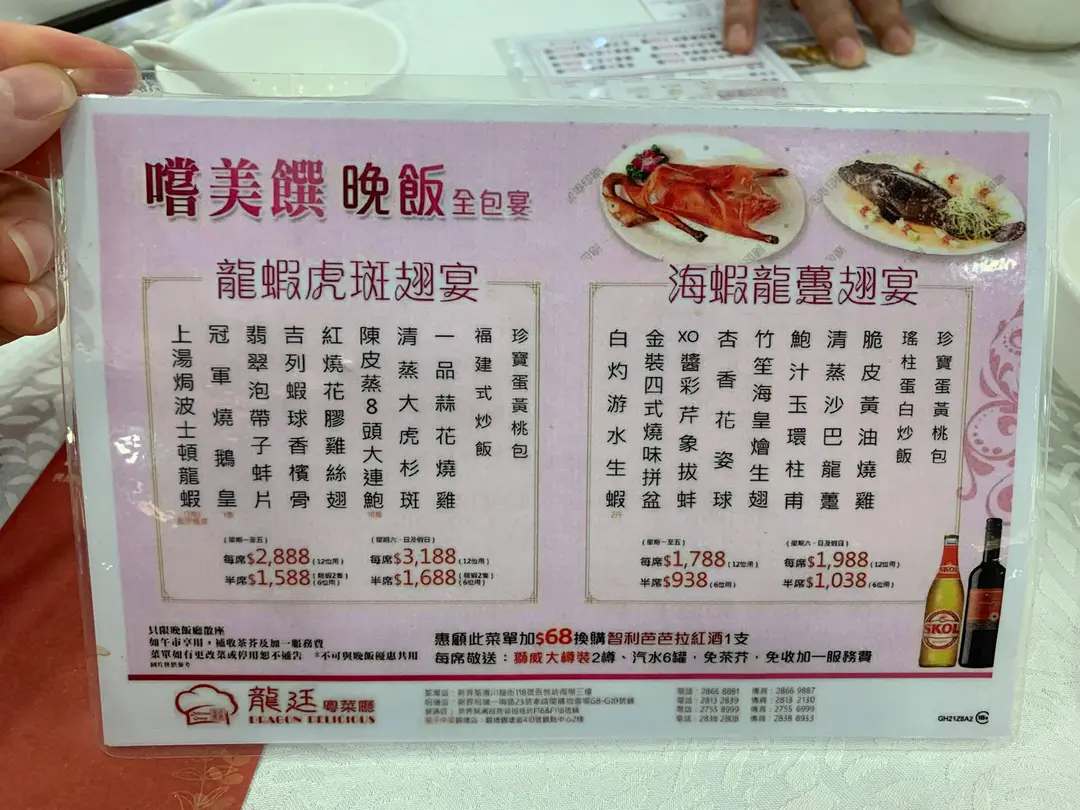 嚐美饌 晚飯 全包宴
龍蝦虎斑翅宴
上湯焗波士頓龍蝦
冠軍燒鵝皇
翡翠泡帶子蚌片
吉列蝦球香檳骨
紅燒花膠雞絲翅
陳皮蒸8頭大連鮑
清蒸大虎杉斑
一品蒜花燒雞
福建式炒飯
珍寶蛋黃桃包
(星期一至五)
每席$2,888(12位用)
半席$1,588(龍蝦2隻)(6位用)
(星期六、日及假日)
每席$3,188(12位用)
半席$1,688(龍蝦2隻)(6位用)
海蝦龍躉翅宴
白灼游水生蝦
2斤
金裝四式燒味拼盆
XO醬彩芹象拔蚌
杏香花姿球
竹笙海皇燴生翅
鮑汁玉環柱甫
清蒸沙巴龍躉
脆皮黃油燒雞
瑤柱蛋白炒飯
珍寶蛋黃桃包
(星期一至五)
每席$1,788(12位用)
半席$938(6位用)
(星期六、日及假日)
每席$1,988(12位用)
半席$1,038(6位用)
SKOL
只限晚飯廳散座
如午市享用，補收茶芥及加一服務費
菜單如有更改菜或停用恕不通告 *不可與晚飯優惠共用
圖片僅供參考
惠顧此菜單加$68換購智利芭芭拉紅酒1支
每席敬送：獅威大樽裝2樽、汽水6罐，免茶芥，免收加一服務費
龍廷粵菜廳
DRAGON DELICIOUS
電話：2866 8881 傳真：2866 9887
電話：2813 2839 傳真：2813 2130
電話：2755 8999 傳真：2755 6999
電話：2838 2808 傳真：2838 8933
GH21Z8A2